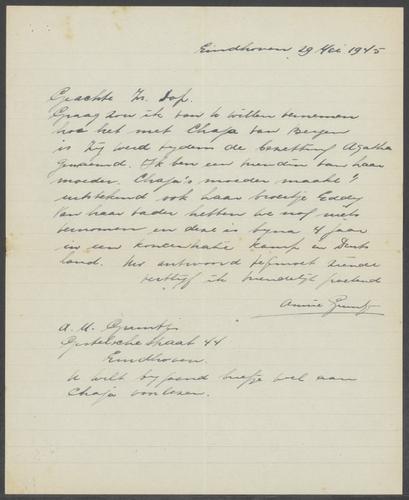 Eindhoven 29 Mei 1945
Geachte Zr. Dop.
Graag zou ik van U willen vernemen
hoe het met Chaja van Bergen
is. Zij werd tydens de bezetting Agatha
genoemd. Ik ben een vriendin van haar
moeder. Chaja's moeder maakt 't
uitstekend ook haar broertje Eddy
Van haar vader hebben we nog niets
vernomen en deze is byna 4 jaar
in een koncentratie kamp in Duits
land. Uw antwoord tegemoet ziende
verblyf ik vriendelyk groetend
Annie Gruntjs
A. M. Gruntjs
Gestelschestraat 44
Eindhoven.
U wilt bygaand briefje wel aan
Chaja voorlezen.